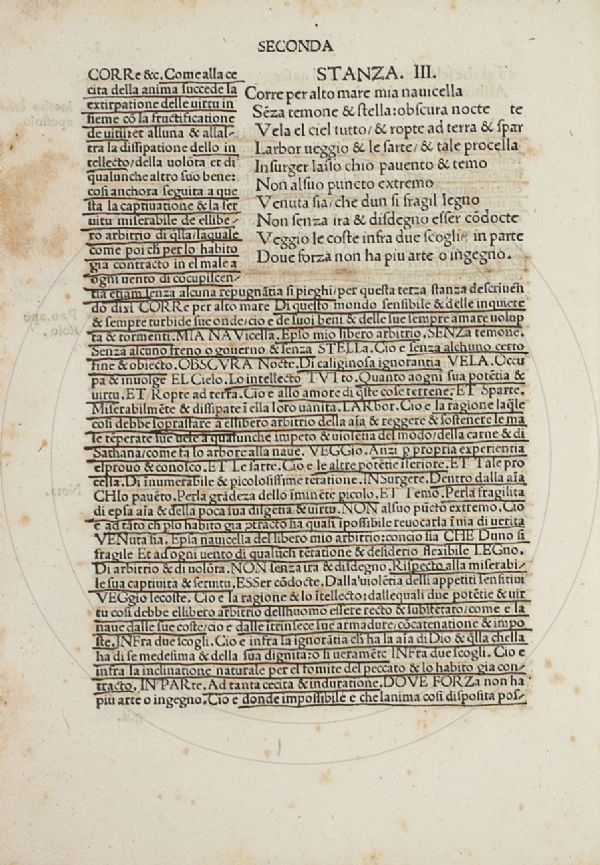 SECONDA
CORRe &c. Come alla ce
cita della anima succede la
extirpatione delle virtu in
sieme cō la fructificatione
de uitii: et alluna & allal-
tra la dissipatione dello in
tellecto/della uolōta et di
qualunche altro suo bene:
cosi anchora seguita a que
sta la captiuatione & la ser
uitu miserabile de ellibe-
ro arbitrio di q̄lla/laquale
come poi ch per lo habito
gia contracto in el male a
ogni uento di cōcupiscen-
STANZA. III.
Corre per alto mare mia nauicella
Sēza temone & stella: obscura nocte te
Vela el ciel tutto/& ropte ad terra & spar
Larbor ueggio & le sarte/& tale procella
Insurger lasso chio pauento & temo
Non alsuo puncto extremo
Venuta sia/che dun si fragil legno
Non senza ira & disdegno esser cōdocte
Veggio le coste infra due scogli in parte
Doue forza non ha piu arte o ingegno.
tia etiam senza alcuna repugnātia si pieghi/per questa terza stanza descriuen
do dixi CORRe per alto mare Di questo mondo sensibile & delle inquiete
& sempre turbide sue onde/cio e de suoi beni & delle sue sempre amare uolup
ta & tormenti. MIA NAVicella. Epso mio libero arbitrio. SENZa temone.
Senza alcuno freno o gouerno & senza STELLA. Cio e senza alchuno certo
fine & obiecto. OBSCVRA Nocte. Di caliginosa ignorantia VELA. Occu
pa & inuolge EL Cielo. Lo intellecto TVTto. Quanto aogni sua potētia &
uirtu. ET Ropte ad terra. Cio e allo amore di q̄ste cose terrene. ET Sparte.
Miserabilmēte & dissipate i ella loro uanita. LARbor. Cio e la ragione laq̄le
cosi debbe soprastare a ellibero arbitrio della aīa & reggere & sostenere le ma
le tēperate sue uele a qualunche impeto & uiolētia del mōdo/della carne & di
Sathana/come fa lo arbore alla naue. VEGGio. Anzi p propria experientia
elprouo & conosco. ET Le sarte. Cio e le altre potētie īferiore. ET Tale pro
cella. Di īnumerabile & picolosissime tētatione. INSurgere. Dentro dalla aīa
CHIo pauēto. Perla grādeza dello īminēte picolo. ET Temo. Perla fragilita
di epsa aīa & della poca sua diligētia & uirtu. NON alsuo pūcto extremo. Cio
e ad tāto ch p lo habito gia ptracto ha quasi īpossibile reuocarla ī uia di uerita
VENuta sia. Epsa nauicella del libero mio arbitrio: concio sia CHE Duno si
fragile Et ad ogni uento di qualūch tētatione & desiderio flexibile LEGno.
Di arbitrio & di uolōta. NON senza ira & disdegno. Rispecto alla miserabi-
le sua captiuita & seruitu. ESSer cōdocte. Dalla uiolētia delli appetiti sensitiui
VEGgio le coste. Cio e la ragione & lo ītellecto: dallequali due potētie & uir
tu cosi debbe ellibero arbitrio dellhuomo essere recto & substētato/come e la
naue dalle sue coste/cio e dalle ītrinsece sue armadure/cōcatenatione & impo
ste. INFra due scogli. Cio e infra la ignorātia ch ha la aīa di Dio & q̄lla chella
ha di se medesima & della sua dignita: o si ueramēte INFra due scogli. Cio e
infra la inclinatione naturale per el fomite del peccato & lo habito gia con-
tracto. IN PARte. Ad tanta cecita & induratione. DOVE FORZa non ha
piu arte o ingegno. Cio e donde impossibile e che lanima cosi disposita pos-